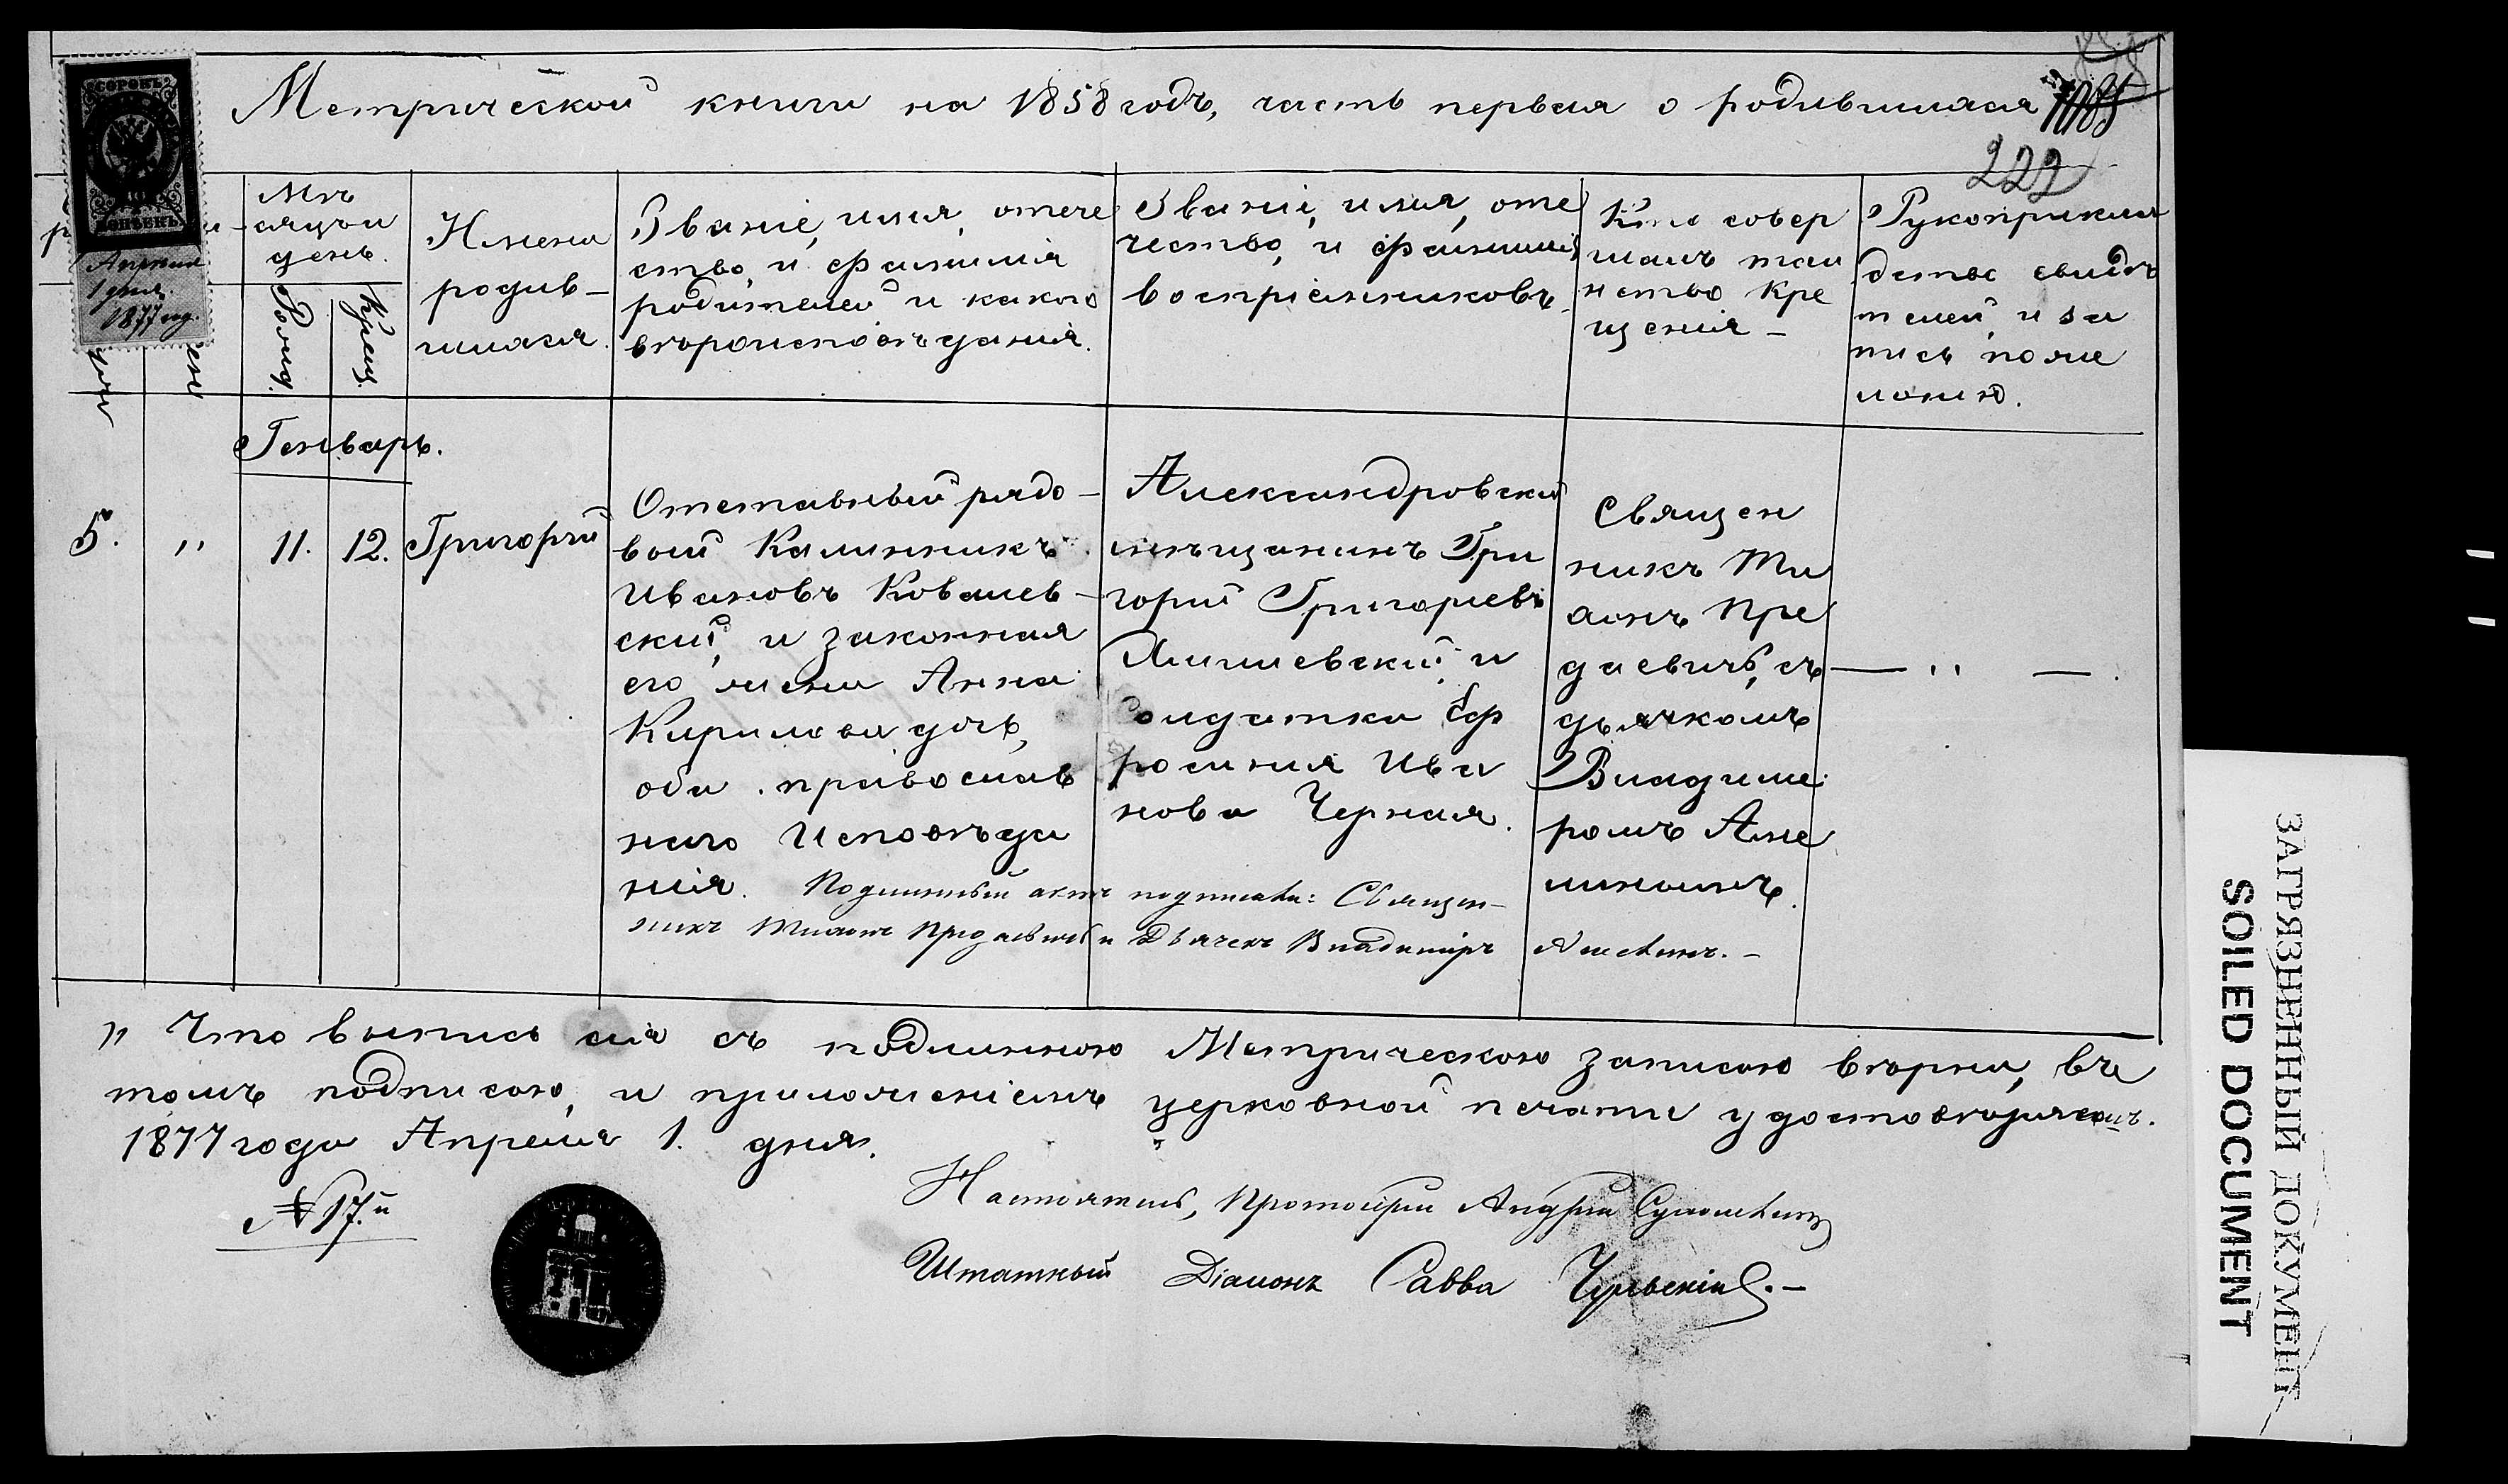 Метрической книги на 1858 годъ, часть первая о родившихся
222
СОРОКЪ
КОПѢЕКЪ
Апрѣля
1 дня
1877 год.
Мѣ
сяцъ и
день.
Рожд.
Крещ.
Имена
родив-
шихся.
Званіе, имя, отече
ство, и фамилія
родителей и какого
вѣроисповѣданія.
Званіе, имя, оте
чество, и фамилія
воспріемниковъ.
Кто совер
шалъ таи
нство кре
щенія –
Рукоприкла
дство свидѣ
телей, и за
пись по же
ланію.
Генварь.
5. " 11. 12. Григорій
Отставный рядо-
вой Калинникъ
Ивановъ Ковалев-
скій, и законная
его жена Анна
Кирилова дочь,
оба православ
наго Исповѣда
нія.
Александровскій
мѣщанинъ Гри
горій Григорьевъ
и
Солдатка Еф
росинія Ива
нова Черная.
Священ
никъ Ти
монъ Пре
даевичъ, съ
дьячкомъ
Владиме
ромъ
— " —.
Подлинный актъ подписали: Священ-
никъ Тимонъ Предаевичъ и Дьячекъ Владиміръ
" Что выпись сія съ подлинною Метрическою записью вѣрна, въ
томъ подписью, и приложеніемъ церковной печати удостовѣряемъ.
1877 года Апреля 1. дня.
№ 17.й
Настоятель, Протоіерей Андрей
Штатный Діаконъ Савва
ЗАГРЯЗНЕННЫЙ ДОКУМЕНТ
SOILED DOCUMENT